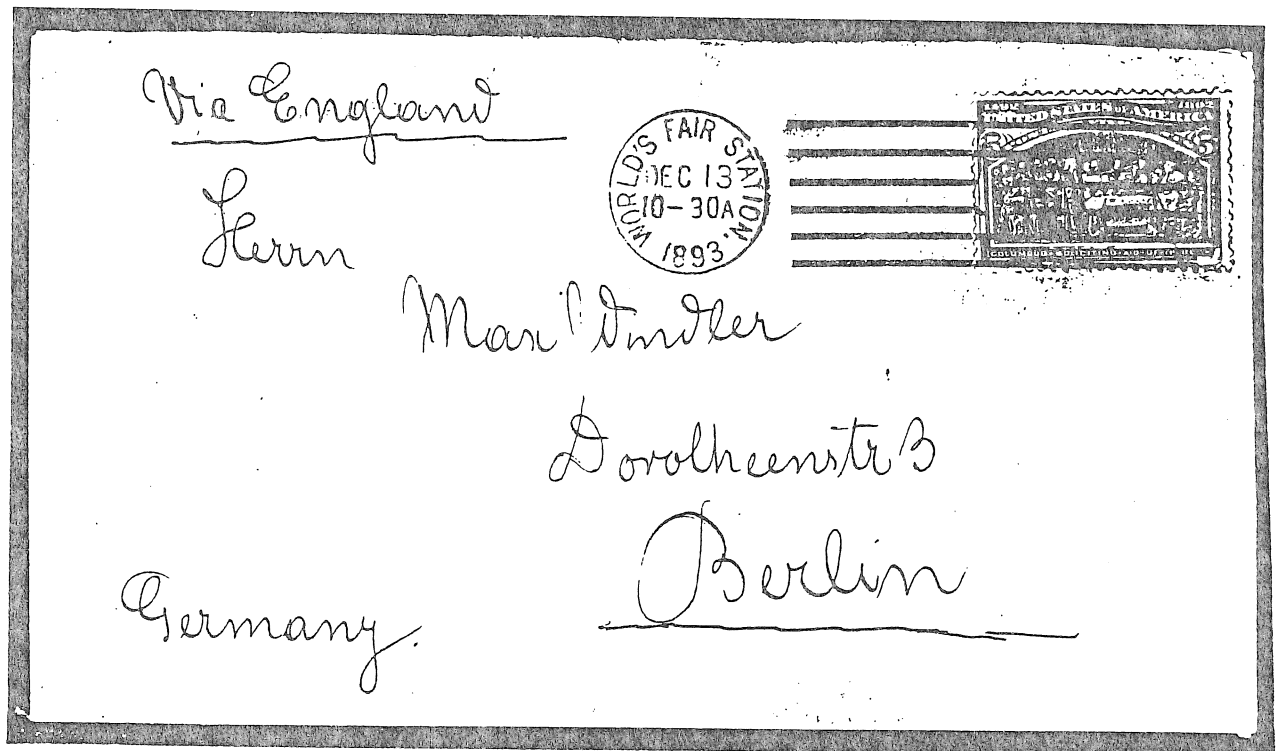 Via England
WORLD'S FAIR STATION.
DEC 13
10-30A
1893
1492 1892
UNITED STATES OF AMERICA
5 5
Herrn
Max
Dorotheenstr 3
Berlin
Germany.